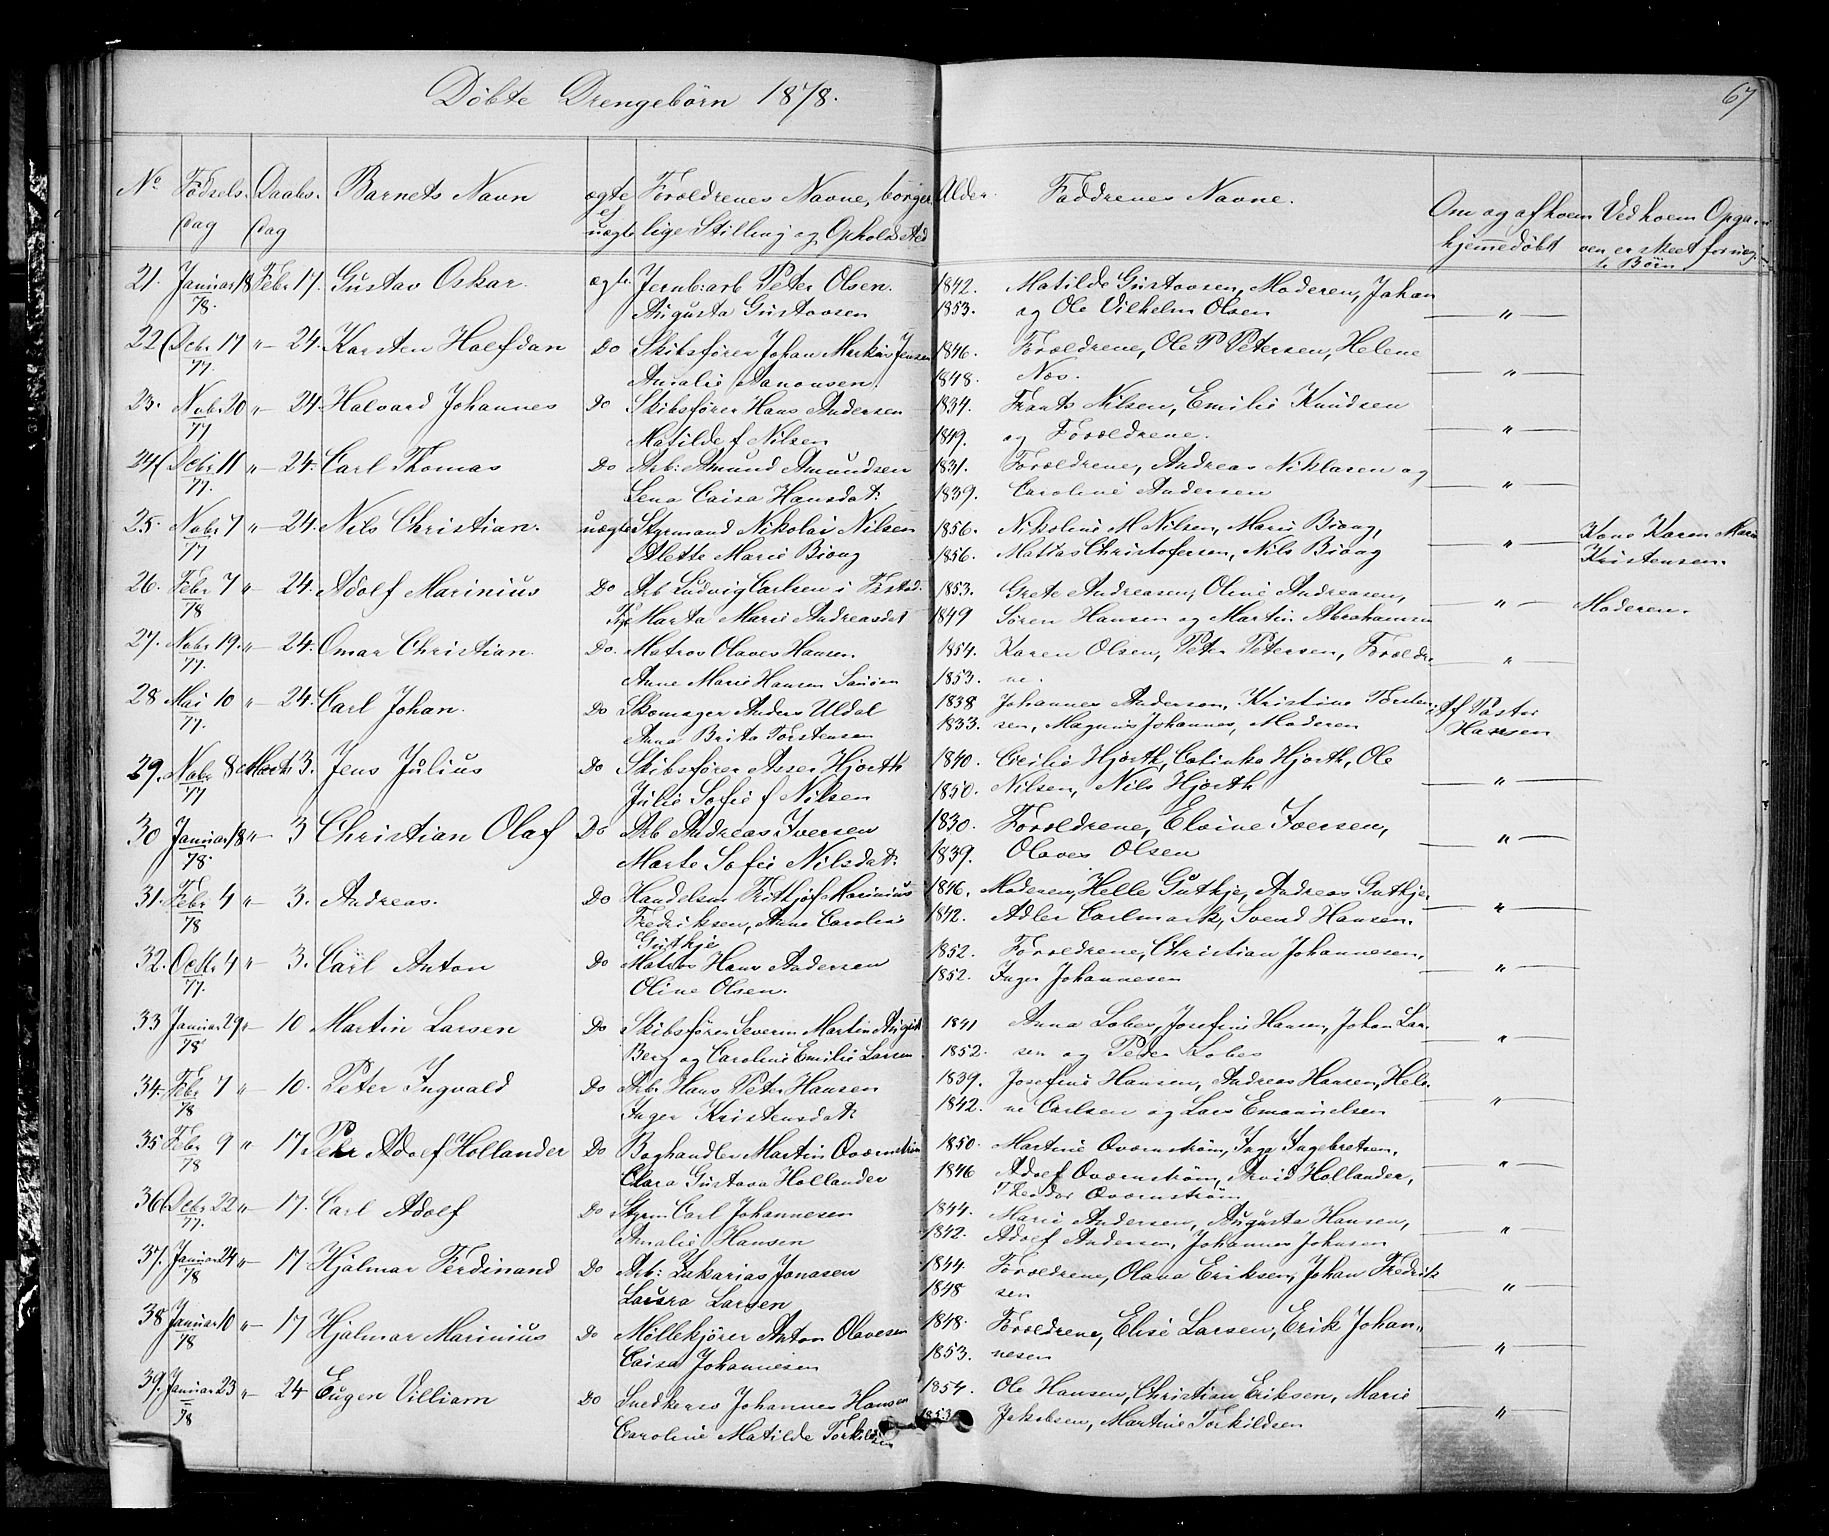 Döbte Drengebörn 1878.
67
No Födsels- Daabs- Barnets Navn ægte Forældrenes Navne, borger Alder. Faddrenes Navne. Om og af hvem Ved hvem Opga-
dag dag el uægte lige Stilling og Opholdssted hjemmedöbt ven er skeet for uæg-
te Börn
21. Januar 18 Febr 17. Gustav Oskar. ægte Jernb: arb Peter Olsen. 1842. Matilde Gustavsen, Moderen, Johan
78. Augusta Gustavsen 1853. og Ole Vilhelm Olsen "
22 Dcbr 17 " 24. Karsten Halfdan Do Skibsförer Johan Markus Jensen 1846. Forældrene, Ole P Petersen, Helene
77. Amalie Aanonsen. 1848. Næs. "
23. Nobr 20 " 24. Halvard Johannes Do Skibsförer Hans Andersen 1834. Frants Nilsen, Emilie Knudsen
77 Matilde f Nilsen 1849. og Forældrene. "
24 Dcbr 11 " 24. Carl Thomas Do Arb: Amund Amundsen 1831. Forældrene, Andreas Niklasen og
77. Lena Caisa Hansdat: 1839. Caroline Andersen "
25. Nobr 7 " 24. Nils Christian. uægte Styrmand Nikolai Nilsen 1856. Nikoline M Nilsen, Marie Bioug, Kone Karen Marie
77 Alette Marie Bioug 1856. Mattias Christofersen, Nils Bioug " Kristensen.
26. Febr 7 " 24. Adolf Marinius Do Arb Ludvig Carlsen i Frstad. 1853. Grete Andreasen, Oline Andreasen,
78 Pige Marta Marie Andreasdat 1849 Sören Hansen og Martin Abrahamsen " Moderen.
27. Nobr 19. " 24. Omar Christian. Do. Matros Olaves Hansen 1854. Karen Olsen, Peter Petersen, Forældre
77. Anne Marie Hansen 1853. ne. "
28 Mai 10 " 24. Carl Johan. Do Skomager Anders Uldal 1838 Johannes Andersen, Kristine Torsten- Af Pastor
77. Anna Brita Torstensen 1833. sen, Magnus Johannes, Moderen Hansen
29. Nobr 8 Marts 3. Jens Julius Do Skibsförer Asser Hjorth 1840. Cecilie Hjorth, Catinka Hjorth, Ole
77 Julie Sofie f Nilsen 1850. Nilsen, Nils Hjorth "
30 Januar 18 " 3 Christian Olaf Do Arb Andreas Iversen 1830. Forældrene, Elvine Iversen,
78. Marte Sofie Nilsdat: 1839. Olaves Olsen "
31. Febr 4 " 3. Andreas. Do Handelsm Frithjof Marinius 1846. Moderen, Helle Gutkje, Andreas Gutkje,
78 Fredriksen, Anne Caroline 1842. Adler Carlmark, Svend Hansen. "
Gutkje
32. Octbr 4 " 3. Carl Anton Do Matros Hans Andersen 1852. Forældrene, Christian Johannesen,
77. Oline Olsen. 1852. Inger Johannesen "
33 Januar 29 " 10 Martin Larsen Do Skibsförer Severin Martin August 1841 Anna Lobes, Josefine Hansen, Johan Lar-
78 Berg og Caroline Emilie Larsen 1852. sen og Peder Lobes "
34. Febr 7 " 10. Peter Ingvald Do Arb: Hans Peter Hansen 1839. Josefine Hansen, Andreas Hansen, Hele-
78 Inger Kristensdat: 1842. ne Carlsen og Lars Emanuelsen "
35 Febr 9 " 17. Peter Adolf Hollander Do Boghandler Martin Qværnström 1850. Martine Qværnström, Inga Ingebretsen,
78 Clara Gustava Hollander 1846 Adolf Qværnström, Arvid Hollander, "
Theodor Qværnström
36 Dcbr 22 " 17. Carl Adolf Do Styrm Carl Johannesen 1844. Marie Andersen, Augusta Hansen,
77. Amalie Hansen 1842. Adolf Andersen, Johannes Johnsen "
37. Januar 24 " 17 Hjalmar Ferdinand Do Arb: Zakarias Jonasen 1844. Forældrene, Olava Eriksen, Johan Fredrik
78 Laura Larsen 1848 sen "
38 Januar 10 " 17 Hjalmar Marinius Do Möllekjörer Anton Olavesen 1848. Forældrene, Elise Larsen, Erik Johan-
78 Caisa Johannesen 1853. nesen "
39. Januar 23 " 24 Eugen Villiam Do Snedkersv Johannes Hansen 1854. Ole Hansen, Christian Eriksen, Marie
78 Caroline Matilde Torkildsen 1853 Jakobsen, Martine Torkildsen "